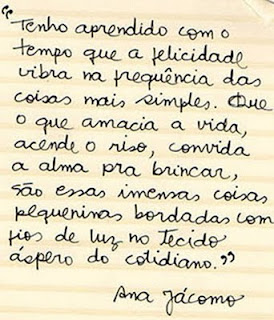 “Tenho aprendido com o
tempo que a felicidade
vibra na frequência das
coisas mais simples. Que
o que amacia a vida,
acende o riso, convida
a alma pra brincar,
são essas imensas coisas
pequeninas bordadas com
fios de luz no tecido
áspero do cotidiano.”
Ana Jácomo